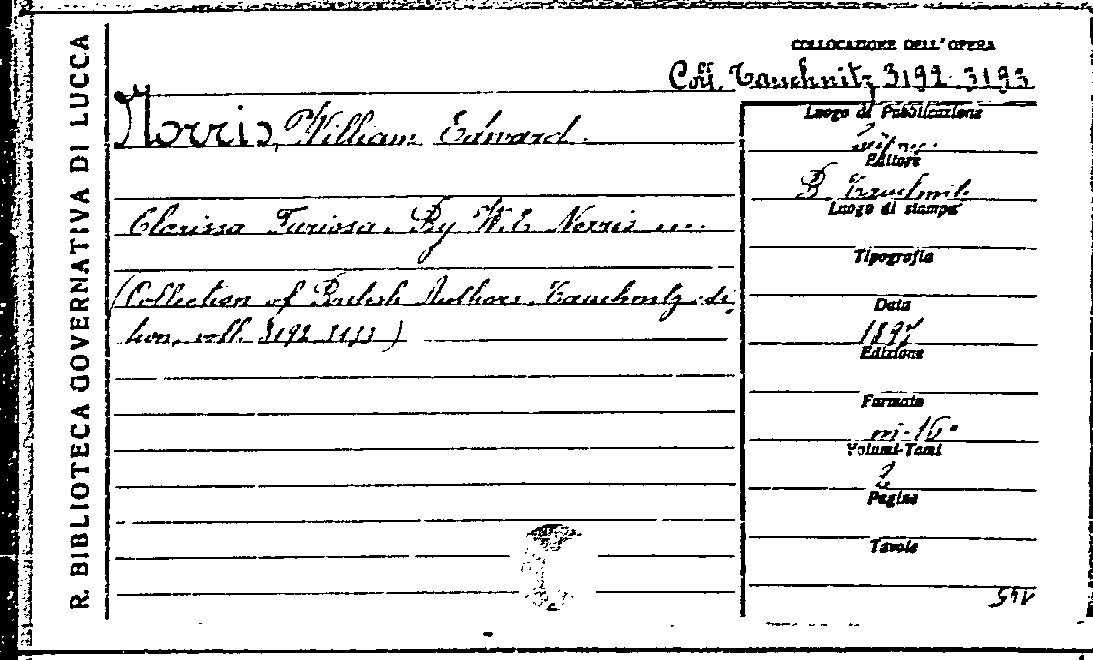 R. BIBLIOTECA GOVERNATIVA DI LUCCA
COLLOCAZIONE DELL'OPERA
Coll. Tauchnitz 3192-3193
Norris, William Edward.
Clarissa Furiosa. By W. E. Norris ....
(Collection of British Authors. Tauchnitz edi
tion, voll. 3192-3193)
Luogo di Pubblicazione
Editore
B. Tauchnitz
Luogo di stampa
Tipografia
Data
1897
Edizione
Formato
in-16°
Volumi-Tomi
2
Pagine
Tavole